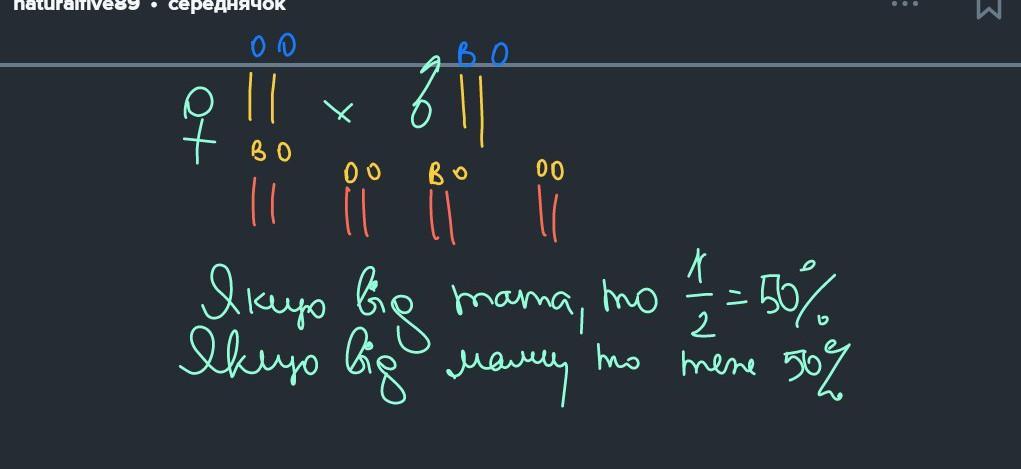 naturalfive89 • середнячок
OO BO
♀ × ♂
BO OO BO OO
Якщо від тата, то 1/2 = 50%
Якщо від мами то теж 50%